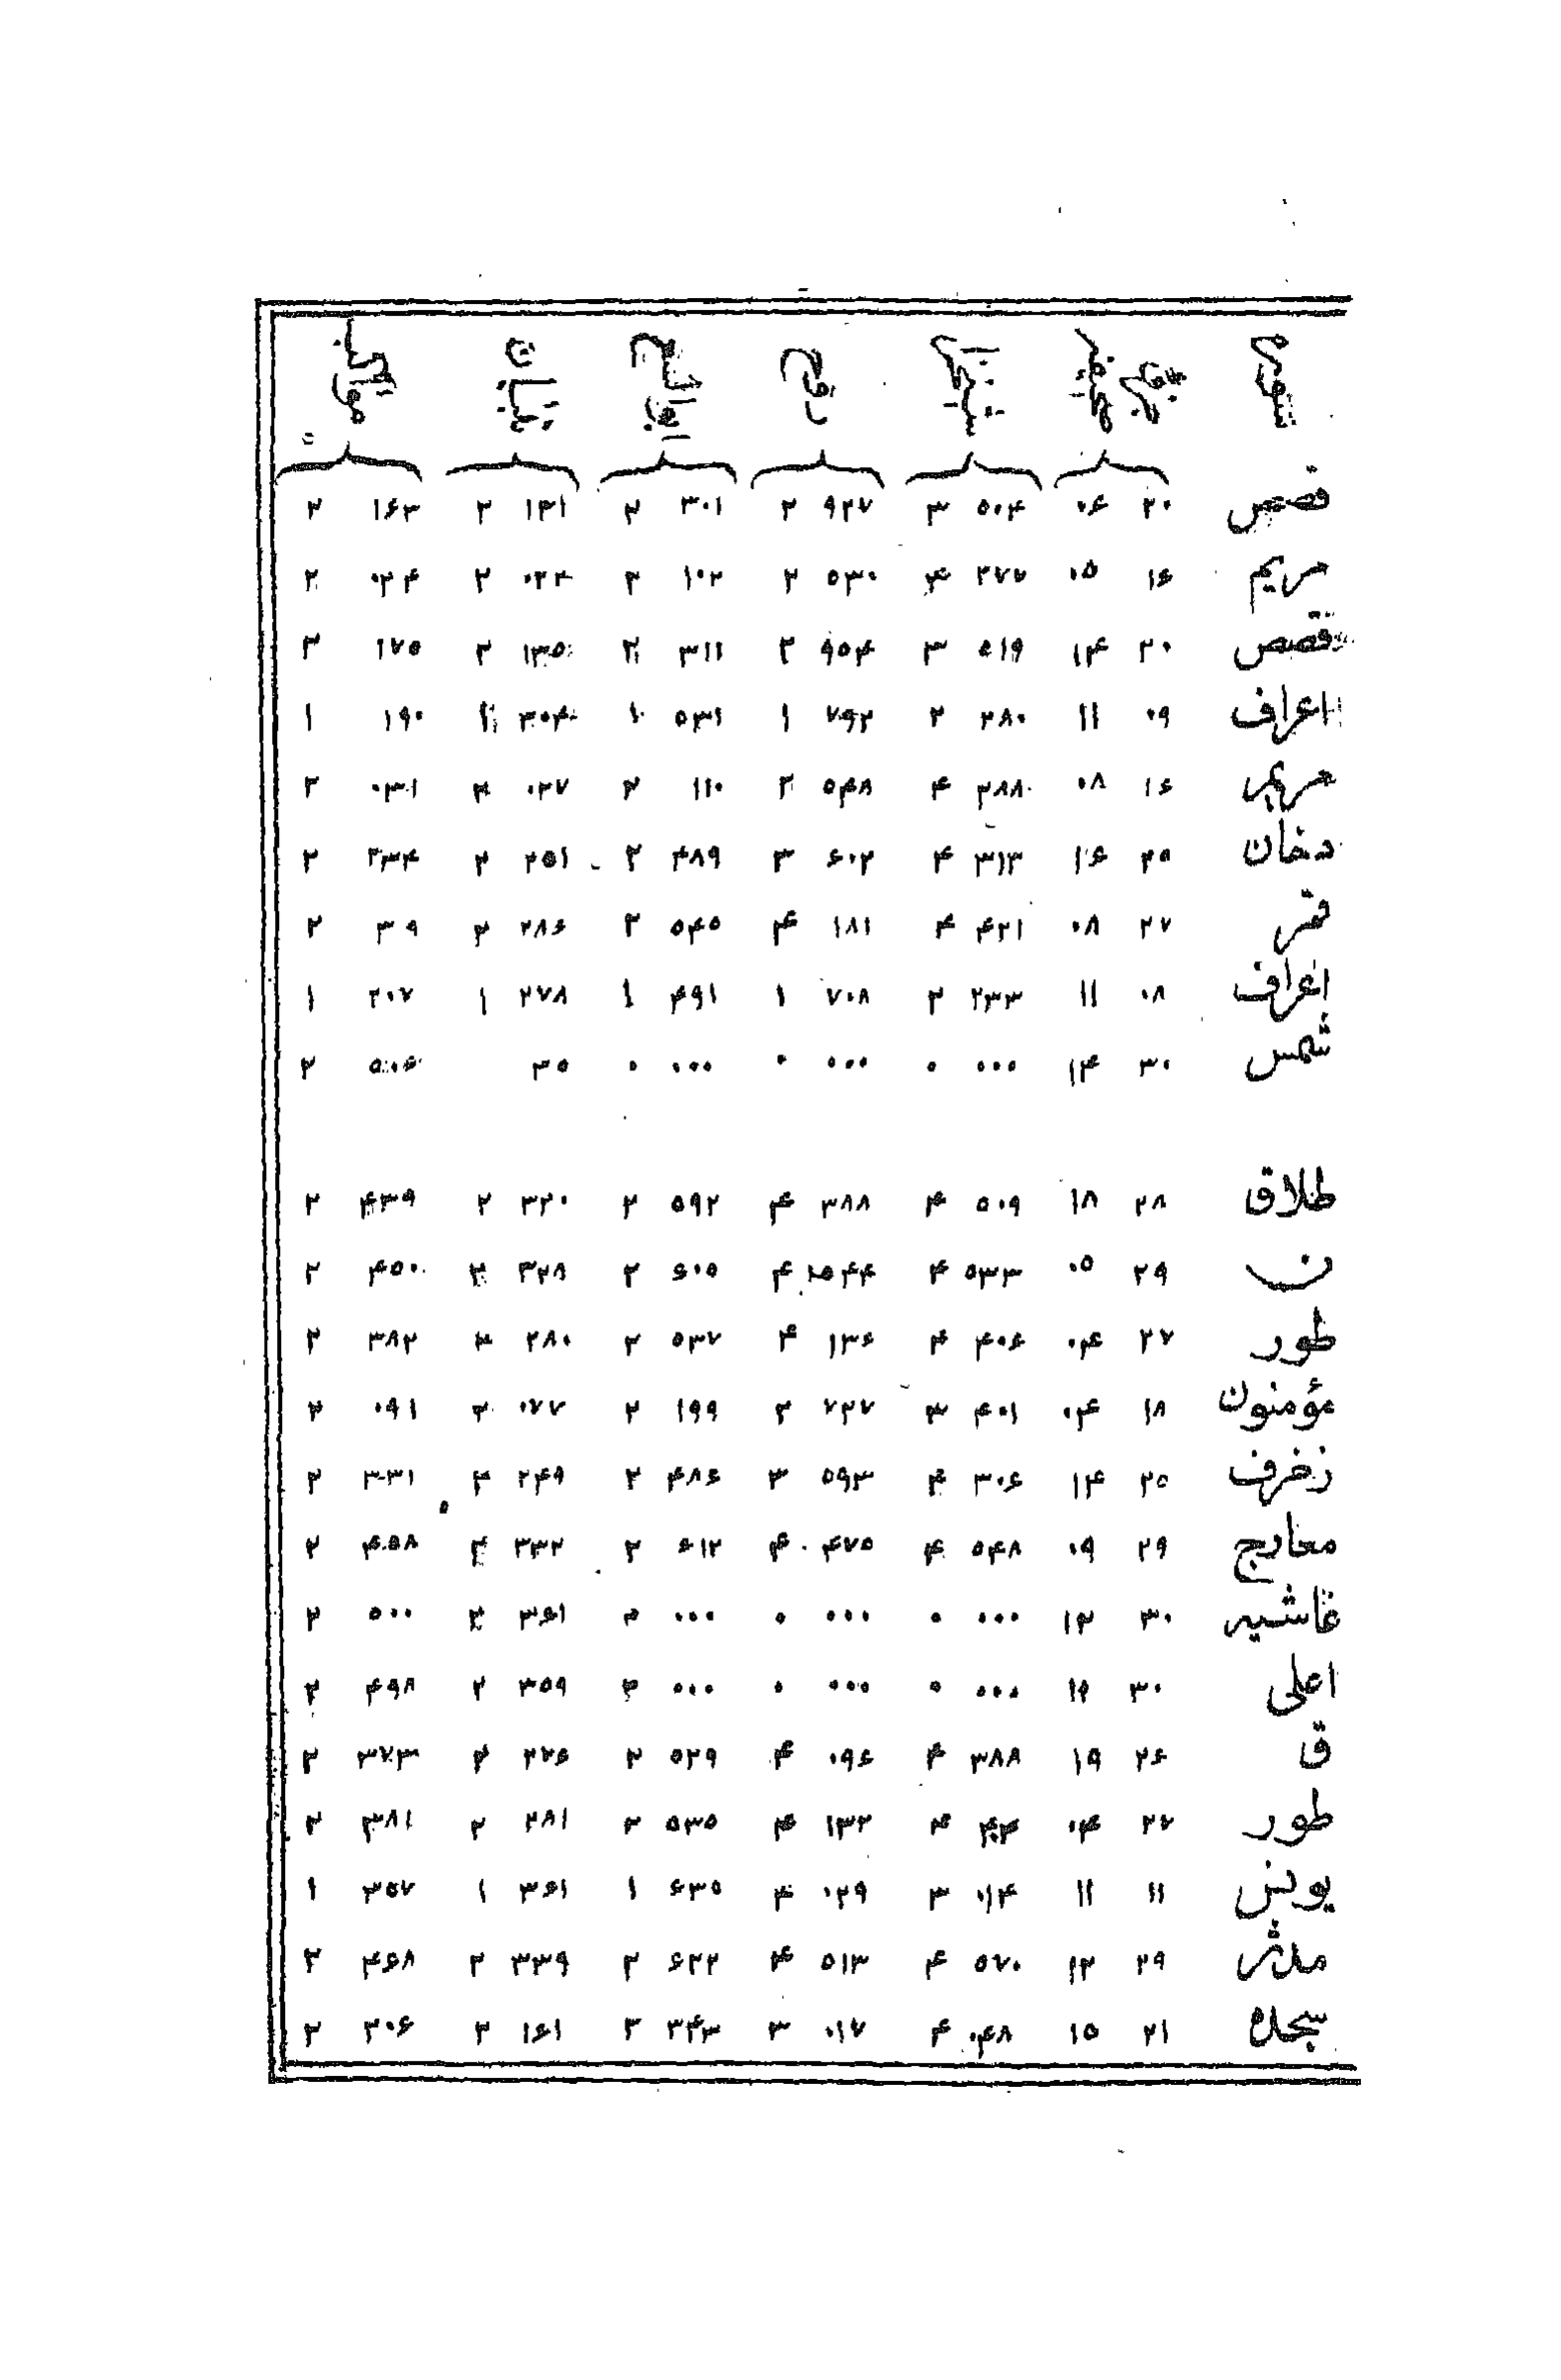 قصص ۲۰ ۰۶ ۵۰۴ ۳ ۹۲۷ ۲ ۳۰۱ ۲ ۱۳۱ ۲ ۱۶۳ ۲
مریم ۱۶ ۰۵ ۲۷۷ ۴ ۵۳۰ ۲ ۱۰۲ ۲ ۰۲۴ ۲ ۰۲۴ ۲
قصص ۲۰ ۱۴ ۵۱۹ ۳ ۹۵۴ ۲ ۳۱۱ ۲ ۱۳۵ ۲ ۱۷۵ ۲
اعراف ۰۹ ۱۱ ۲۸۰ ۲ ۷۹۲ ۱ ۵۳۱ ۱ ۳۰۴ ۱ ۱۹۰ ۱
مریم ۱۶ ۰۸ ۲۸۸ ۴ ۵۴۸ ۲ ۱۱۰ ۲ ۰۲۷ ۲ ۰۳۱ ۲
دخان ۲۵ ۱۶ ۳۱۳ ۴ ۶۰۲ ۳ ۴۸۹ ۲ ۲۵۱ ۲ ۳۳۴ ۲
قمر ۲۷ ۰۸ ۴۲۱ ۴ ۱۸۱ ۴ ۵۴۵ ۲ ۲۸۶ ۲ ۳۹ ۲
اعراف ۰۸ ۱۱ ۲۳۳ ۲ ۷۰۸ ۱ ۴۹۱ ۱ ۲۷۸ ۱ ۲۰۷ ۱
شمس ۳۰ ۱۴ ۰۰۰ ۰ ۰۰۰ ۰ ۰۰۰ ۰ ۳۵ ۵۰۶ ۲
طلاق ۲۸ ۱۸ ۵۰۹ ۴ ۳۸۸ ۴ ۵۹۲ ۲ ۳۲۰ ۲ ۴۳۹ ۲
ن ۲۹ ۰۵ ۵۳۳ ۴ ۴ ۶۰۵ ۲ ۳۲۸ ۲ ۴۵۰ ۲
طور ۲۷ ۰۴ ۴۰۶ ۴ ۱۳۶ ۴ ۵۳۷ ۲ ۲۸۰ ۲ ۳۸۲ ۲
مؤمنون ۱۸ ۰۴ ۴۰۱ ۳ ۷۲۷ ۲ ۱۹۹ ۲ ۰۷۷ ۲ ۰۹۱ ۲
زخرف ۲۵ ۱۴ ۳۰۶ ۴ ۵۹۳ ۳ ۴۸۶ ۲ ۲۴۹ ۲ ۳۳۱ ۲
معارج ۲۹ ۰۹ ۵۴۸ ۴ ۴۷۵ ۴ ۶۱۲ ۲ ۳۳۲ ۲ ۴۵۸ ۲
غاشیه ۳۰ ۱۲ ۰۰۰ ۰ ۰۰۰ ۰ ۰۰۰ ۳۶۱ ۲ ۵۰۰ ۲
اعلی ۳۰ ۰۰۰ ۰ ۰۰۰ ۰ ۰۰۰ ۲ ۳۵۹ ۲ ۴۹۸ ۲
ق ۲۶ ۱۹ ۳۸۸ ۴ ۰۹۶ ۴ ۵۲۹ ۲ ۲۷۶ ۲ ۳۷۳ ۲
طور ۲۷ ۰۴ ۴ ۱۳۲ ۴ ۵۳۵ ۲ ۲۸۱ ۲ ۳۸۱ ۲
یونس ۱۱ ۱۱ ۰۱۴ ۳ ۰۲۹ ۴ ۶۳۵ ۱ ۳۶۱ ۱ ۳۵۷ ۱
مدثر ۲۹ ۱۲ ۵۷۰ ۴ ۵۱۳ ۴ ۶۲۲ ۲ ۳۳۹ ۲ ۴۶۸ ۲
سجده ۲۱ ۱۵ ۰۴۸ ۴ ۰۱۷ ۳ ۳۴۳ ۲ ۱۶۱ ۲ ۲۰۶ ۲